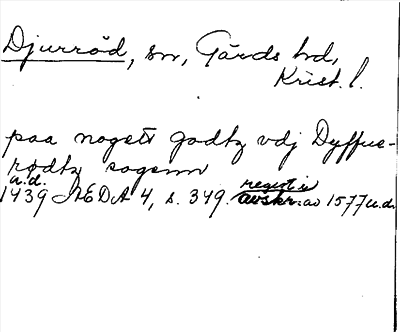 Djurröd, sn, Gärds hd,
Krist. l.
paa nogett godtz vdj Dyffue-
rødtz sogenn
u.d.
1439 ÆDA 4, s. 349. regist i avskr. av 1577 u.d.